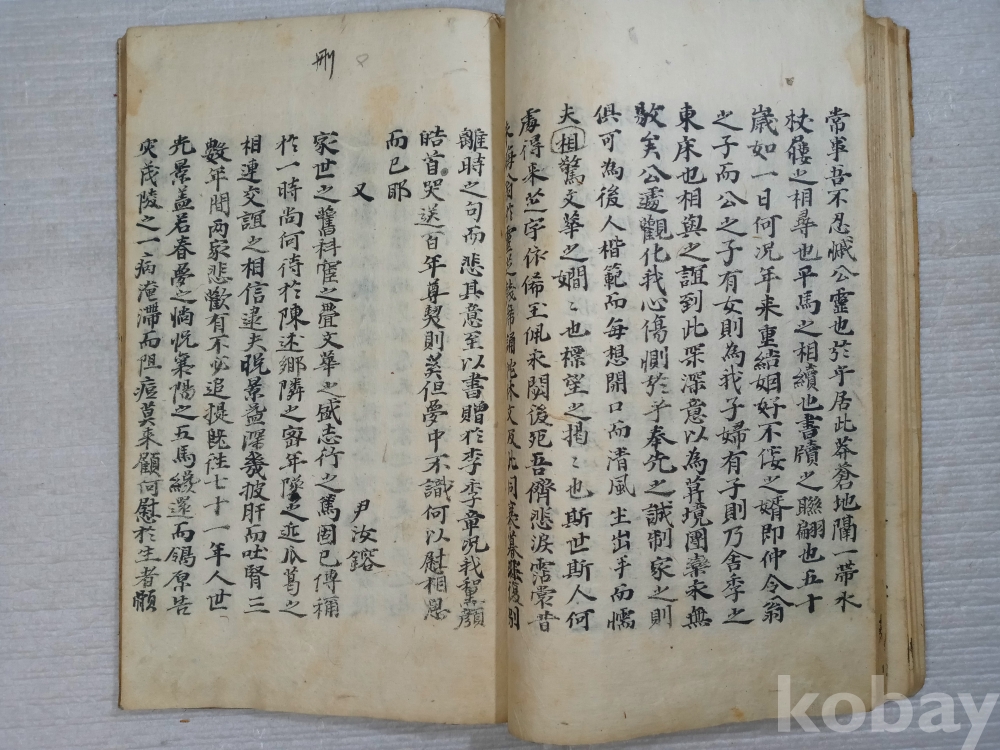 常事吾不忍燼公靈也於乎居此莽蒼地隔一帶水
杖屨之相尋也平馬之相續也書牘之聯翩也五十
歲如一日何況年來重結姻好不佞之婿即仲令翁
之子而公之子有女則為我子婦有子則乃舍季之
東床也相與之誼到此罙深意以為暮境團欒未無
斁矣公遽觀化我心傷惻於乎奉先之誠制家之則
俱可為後人楷範而每想開口而淸風生出乎而懦
夫相驚文華之嫺〻也標望之揭〻也斯世斯人何
處得來芝宇依俙玉佩永閟後死吾儕悲淚霑裳昔
離時之句而悲其意至以書贈於李季章況我蒼顔
皓首哭送百年尊契則奚但夢中不識何以慰相思
而已耶
又
尹汝鎔
家世之舊科宦之疊文華之盛志行之篤固已傳稱
於一時尚何待於陳述鄉隣之密年墜之近瓜葛之
相連交誼之相信逮夫晩景益深幾披肝而吐腎三
數年間兩家悲歡有不必追提旣往七十一年人世
光景盖若春夢之惝怳襄陽之五馬纔還而鴒原告
灾茂陵之一病淹滯而阻痘莫來顧何慰於生者顧
刪
kobay